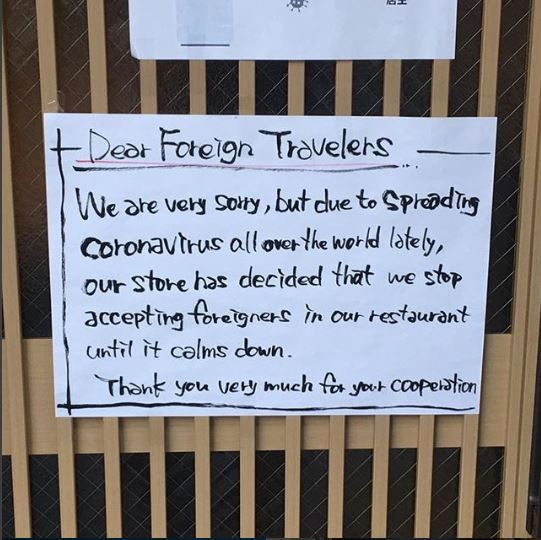 店主
Dear Foreign Travelers
We are very sorry, but due to spreading
coronavirus all over the world lately,
our store has decided that we stop
accepting foreigners in our restaurant
until it calms down.
Thank you very much for your cooperation